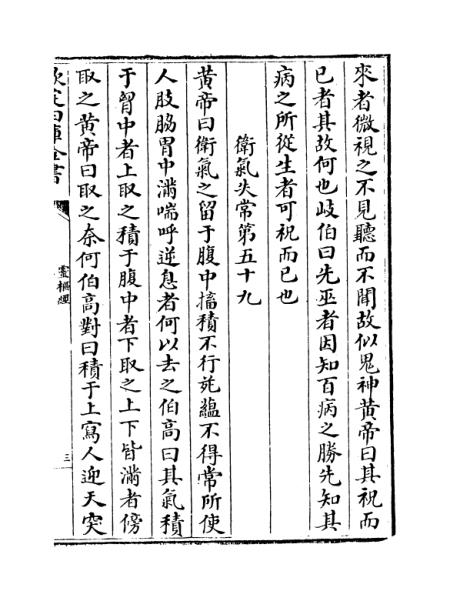 來者微視之不見聽而不聞故似鬼神黄帝曰其祝而
已者其故何也岐伯曰先巫者因知百病之勝先知其
病之所從生者可祝而已也
衛氣失常第五十九
黄帝曰衛氣之留于腹中搐積不行菀蘊不得常所使
人肢脇胃中滿喘呼逆息者何以去之伯高曰其氣積
于胷中者上取之積于腹中者下取之上下皆滿者傍
取之黄帝曰取之奈何伯高對曰積于上寫人迎天突
欽定四庫全書
靈樞經
三